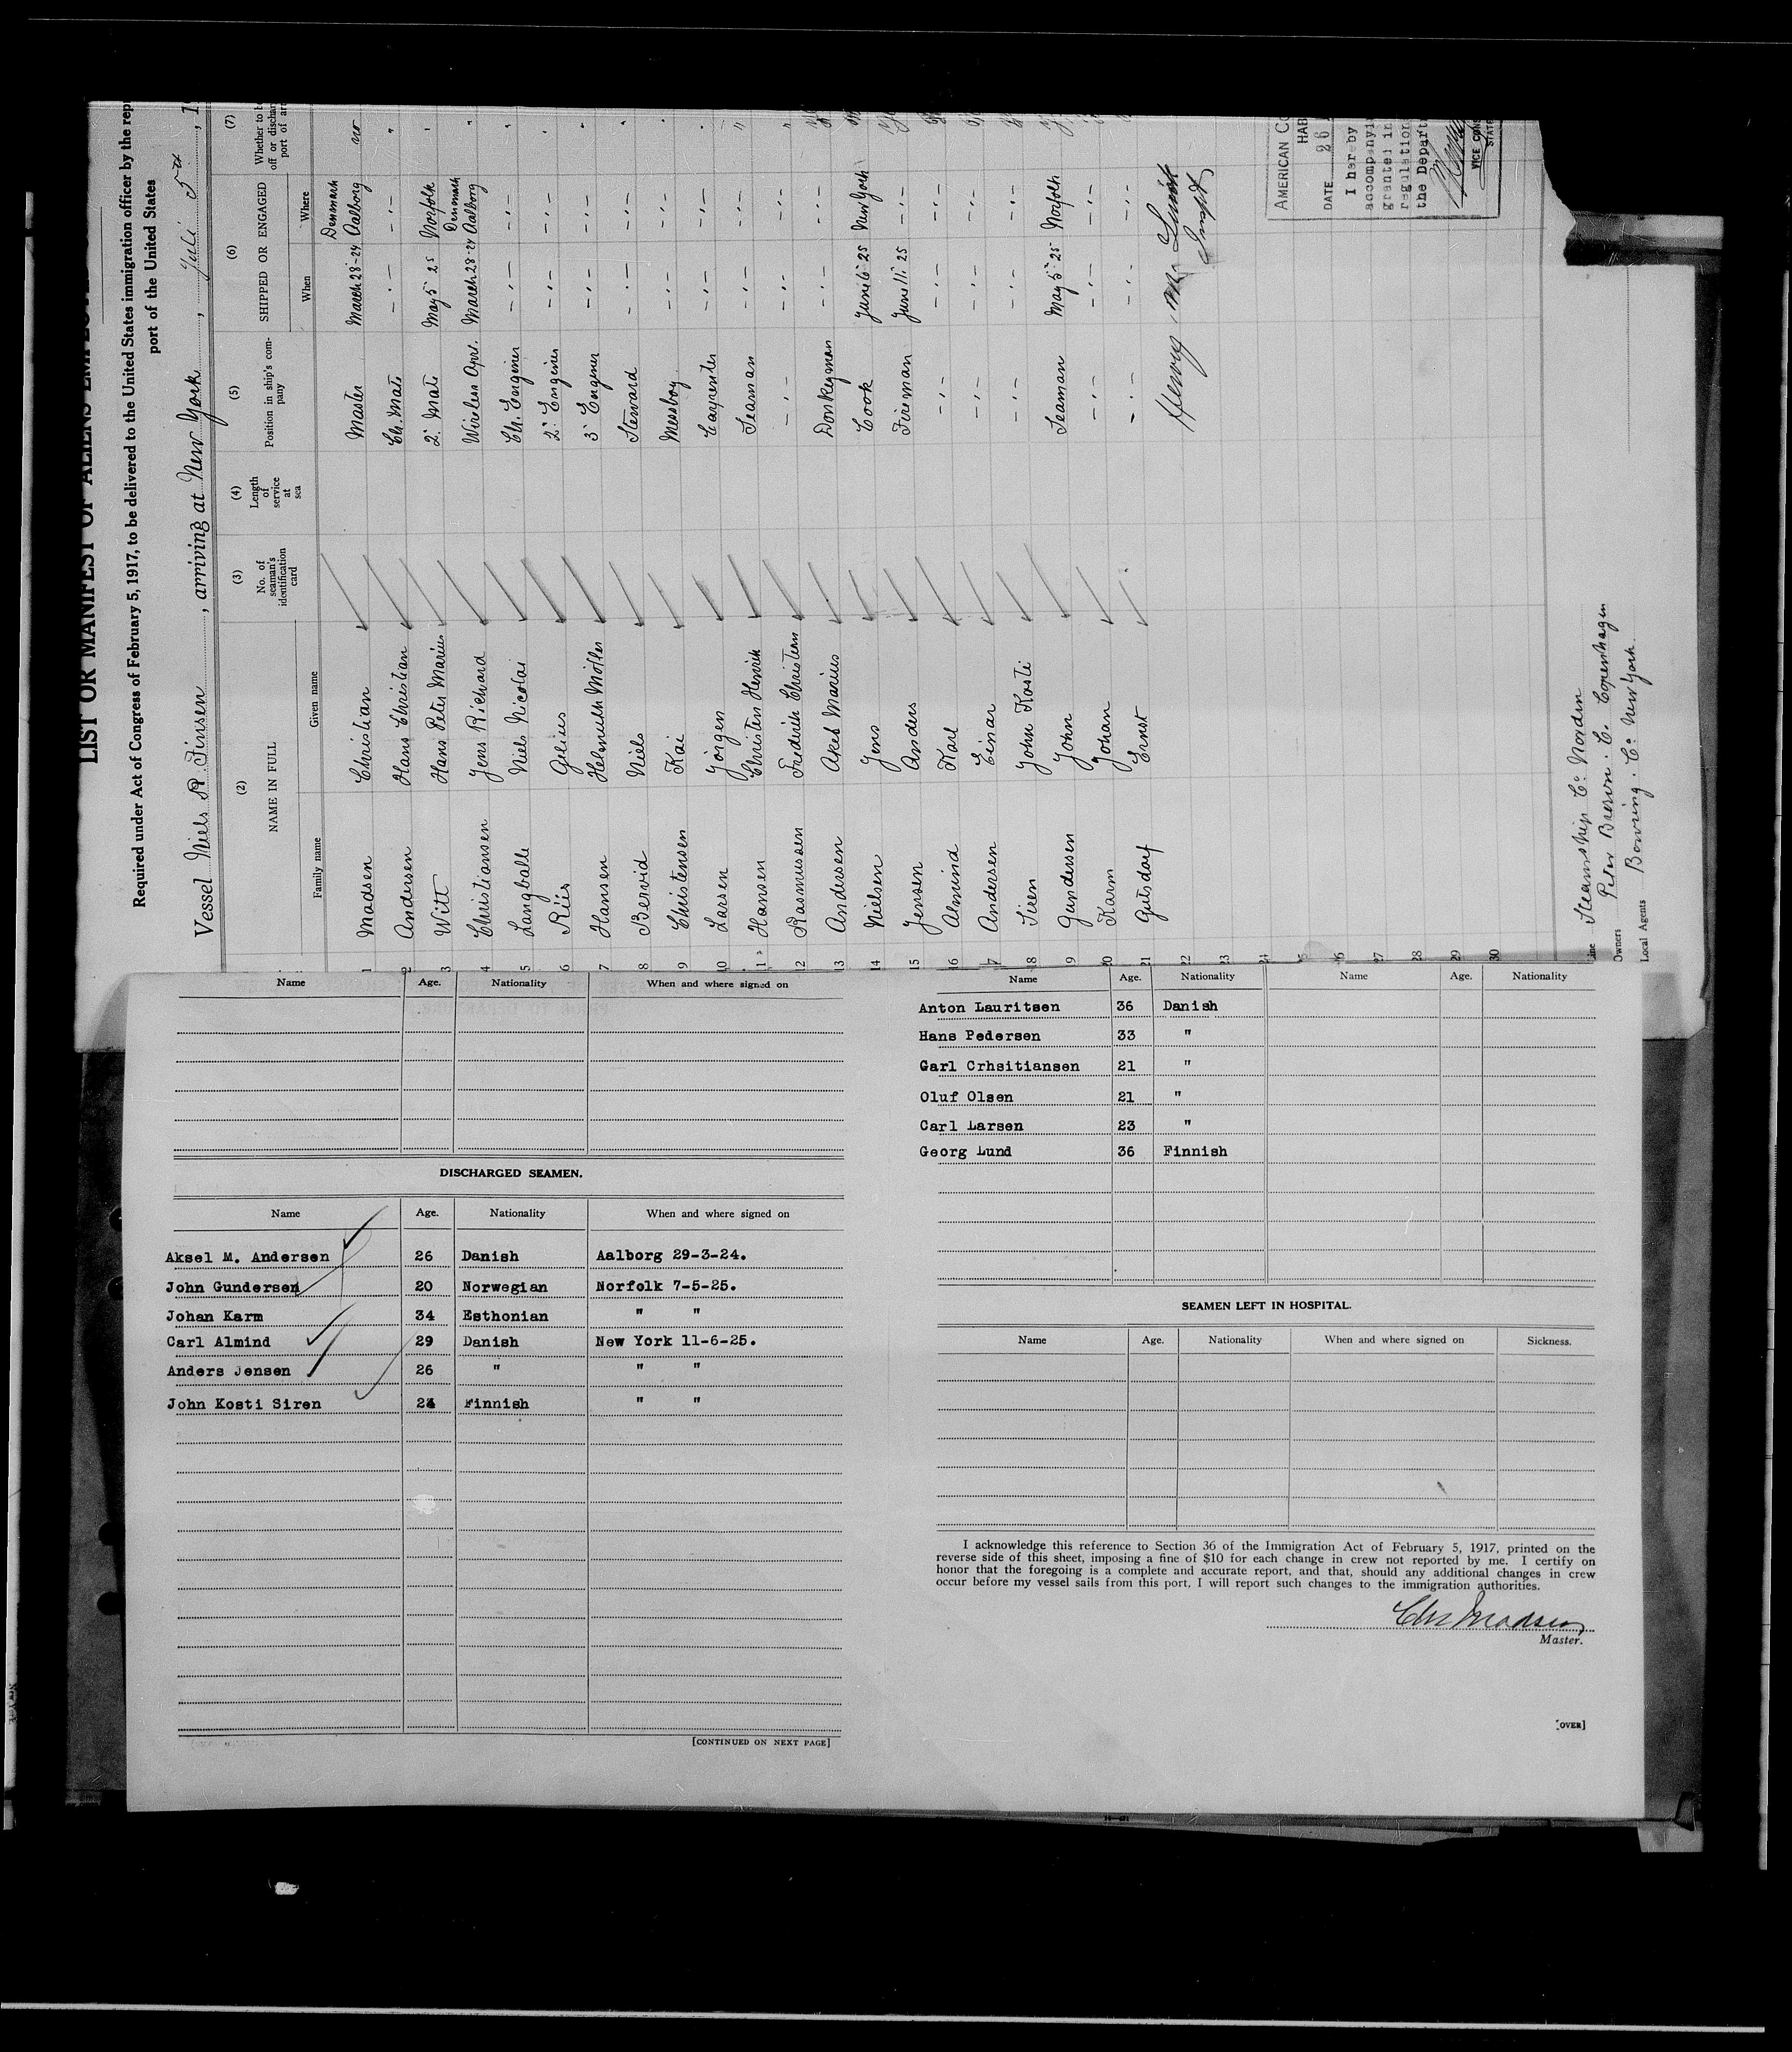 LIST OR MANIFEST OF ALIENS
Required under Act of Congress of February 5, 1917, to be delivered to the United States immigration officer by the
port of the United States
Vessel Niels R. Finsen, arriving at New York, Juli 5th, 1
(2) (3) (4) (5) (6) (7)
NAME IN FULL No. of seaman's identification card Length of service at sea Position in ship's company SHIPPED OR ENGAGED Whether to
Family name Given name When Where
1 Madsen Christian Master March 28-24 Denmark Aalborg no
2 Andersen Hans Christian Ch. Mate -"- -"- "
3 Witt Hans Peter Marius 2' Mate May 5' 25 Norfolk "
4 Christiansen Jens Richard Wireless Opr. March 28-24 Denmark Aalborg "
5 Langballe Niels Nicolai Ch. Enginer -"- -"- "
6 Riis 2' Enginer -"- -"- "
7 Hansen Helmuth Möller 3' Enginer -"- -"- "
8 Bervid Niels Steward -"- -"- "
9 Christensen Kai Messboy -"- -"- "
10 Larsen Jörgen Carpenter -"- -"- "
11 Hansen Christen Henrik Seaman -"- -"- "
12 Rasmussen Frederik Christian -"- -"- -"- "
13 Andersen Aksel Marius Donkeyman -"- -"-
14 Nielsen Jens Cook Juni 6' 25 New York
15 Jensen Anders Fireman June 11' 25 -"-
16 Almind Karl -"- -"- -"-
17 Andersen Einar -"- -"- -"-
18 Siren John Kosti -"- -"- -"-
19 Gundersen John Seaman May 5' 25 Norfolk
20 Karm Johan -"- -"- -"-
21 Gutsdorf Ernst -"- -"- -"-
22
23
24
25
26
27
28
29
30
AMERICAN CO
HAB
DATE 26
I hereby
accompanyi
granted in
regulation
the Depart
VICE CONS
STATE
Steamship Co. Norden
Owners Peter Brown. C. Copenhagen
Local Agents Bowring. Co. New York.
Name Age. Nationality When and where signed on
DISCHARGED SEAMEN.
Name Age. Nationality When and where signed on
Aksel M. Andersen 26 Danish Aalborg 29-3-24.
John Gundersen 20 Norwegian Norfolk 7-5-25.
Johan Karm 34 Esthonian " "
Carl Almind 29 Danish New York 11-6-25.
Anders Jensen 26 " " "
John Kosti Siren 24 Finnish " "
[CONTINUED ON NEXT PAGE]
Name Age. Nationality Name Age. Nationality
Anton Lauritsen 36 Danish
Hans Pedersen 33 "
Garl Crhsitiansen 21 "
Oluf Olsen 21 "
Carl Larsen 23 "
Georg Lund 36 Finnish
SEAMEN LEFT IN HOSPITAL.
Name Age. Nationality When and where signed on Sickness.
I acknowledge this reference to Section 36 of the Immigration Act of February 5, 1917, printed on the
reverse side of this sheet, imposing a fine of $10 for each change in crew not reported by me. I certify on
honor that the foregoing is a complete and accurate report, and that, should any additional changes in crew
occur before my vessel sails from this port, I will report such changes to the immigration authorities.
Chr Madsen
Master.
[OVER]